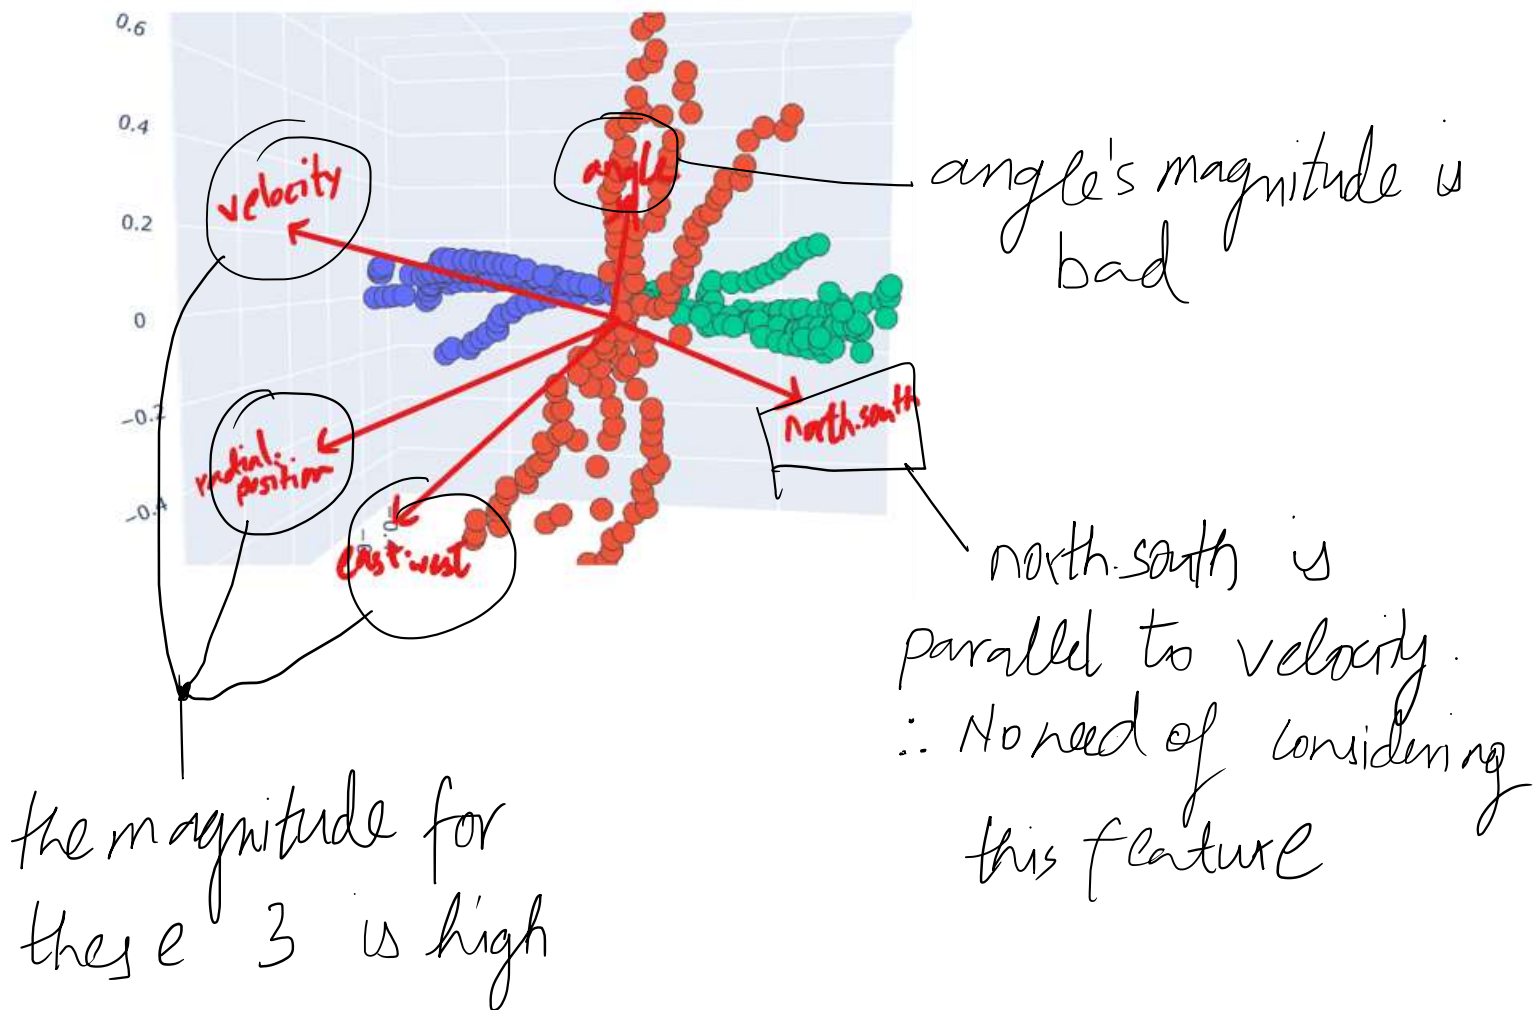 0.6
0.4
0.2
0
−0.2
−0.4
velocity
angle
radial.
position
east.west
north.south
angle's magnitude is
bad
north.south is
parallel to velocity.
∴ No need of considering
this feature
the magnitude for
these 3 is high